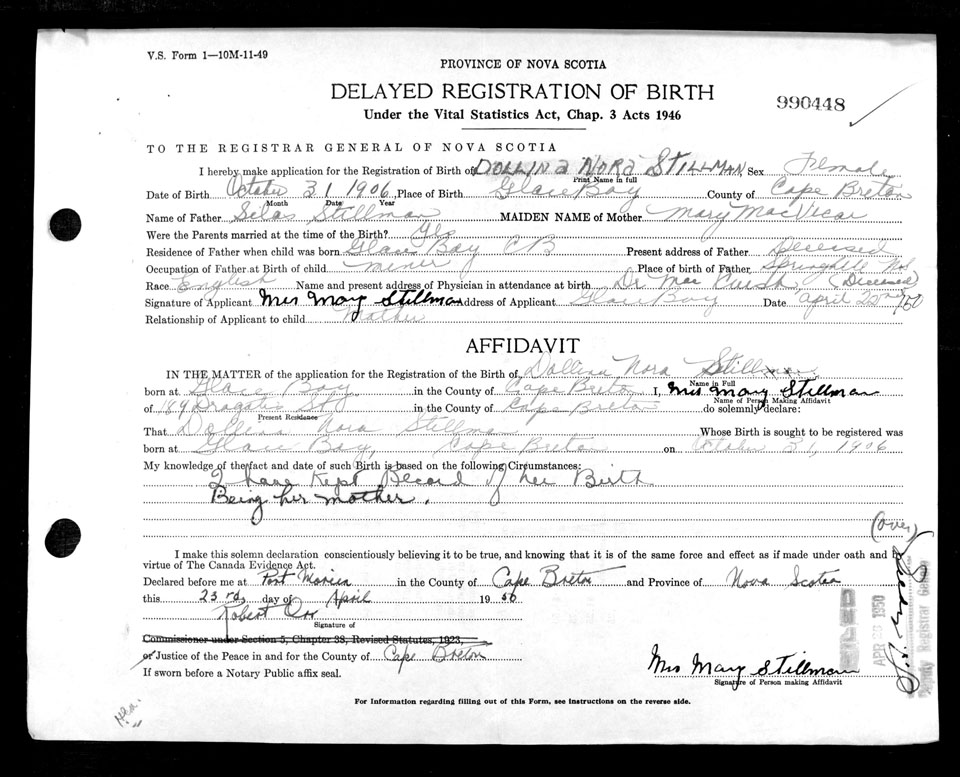 V.S. Form 1—10M-11-49
PROVINCE OF NOVA SCOTIA
DELAYED REGISTRATION OF BIRTH
990448
Under the Vital Statistics Act, Chap. 3 Acts 1946
TO THE REGISTRAR GENERAL OF NOVA SCOTIA
I hereby make application for the Registration of Birth of DOLLINA NORA STILLMAN Sex Female
Print Name in full
Date of Birth October 31 1906 Place of Birth Glace Bay County of Cape Breton
Month Date Year
Name of Father Silas Stillman MAIDEN NAME of Mother Mary MacVicar
Were the Parents married at the time of the Birth? Yes
Residence of Father when child was born Glace Bay C B Present address of Father Deceased
Occupation of Father at Birth of child miner Place of birth of Father Springdell Nfl
Race English Name and present address of Physician in attendance at birth Dr Mac (Deceased)
Signature of Applicant Mrs Mary Stillman Address of Applicant Glace Bay Date April 22nd/50
Relationship of Applicant to child Mother
AFFIDAVIT
IN THE MATTER of the application for the Registration of the Birth of Dollina Nora Stillman
Name in Full
born at Glace Bay in the County of Cape Breton I, Mrs Mary Stillman
Name of Person Making Affidavit
of 189 St in the County of Cape Breton do solemnly declare:
Present Residence
That Dollina Nora Stillman Whose Birth is sought to be registered was
born at Glace Bay, Cape Breton on October 31, 1906
My knowledge of the fact and date of such Birth is based on the following Circumstances:
I have Kept Record of her Birth
Being her mother.
(over)
I make this solemn declaration conscientiously believing it to be true, and knowing that it is of the same force and effect as if made under oath and by
virtue of The Canada Evidence Act.
Declared before me at Port Morien in the County of Cape Breton and Province of Nova Scotia
this 23rd day of April 1950
Robert Orr
Signature of
Commissioner under Section 5, Chapter 38, Revised Statutes, 1923,
or Justice of the Peace in and for the County of Cape Breton
If sworn before a Notary Public affix seal.
Mrs Mary Stillman
Signature of Person making Affidavit
APR 28 1950
Deputy Registrar General
For Information regarding filling out of this Form, see instructions on the reverse side.